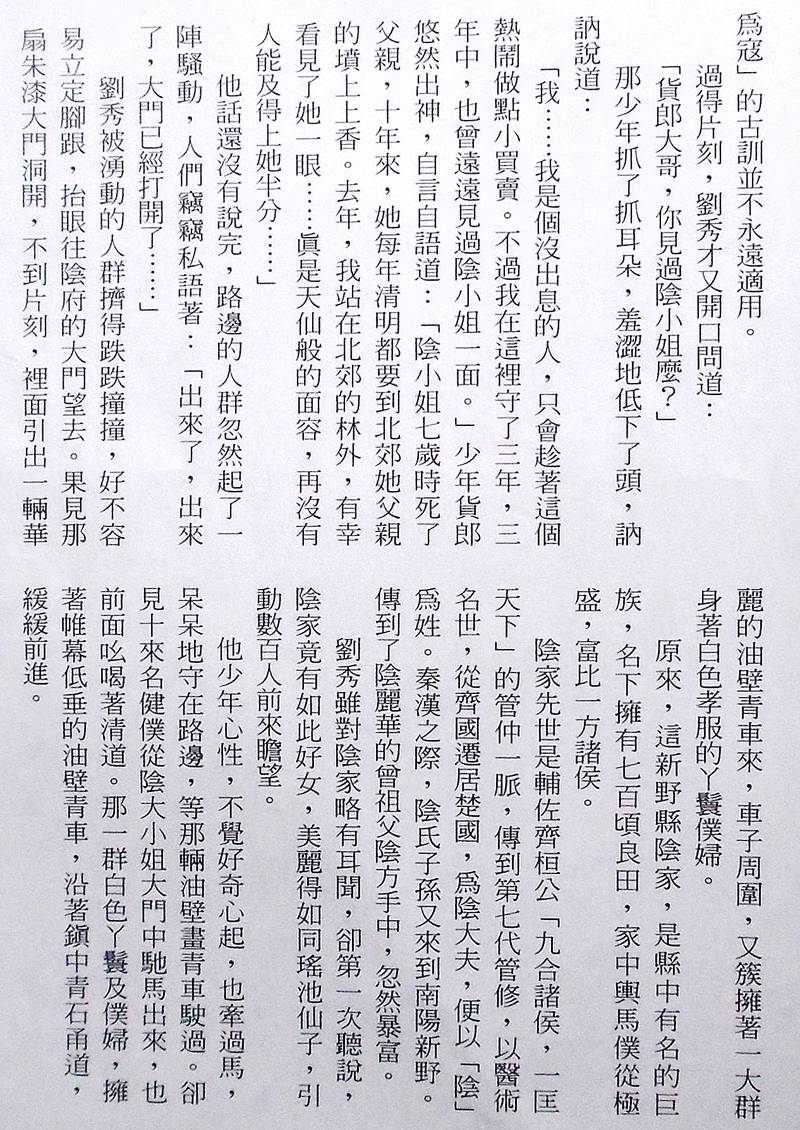 爲寇」的古訓並不永遠適用。
過得片刻，劉秀才又開口問道：
「貨郎大哥，你見過陰小姐麼？」
那少年抓了抓耳朵，羞澀地低下了頭，訥
訥說道：
「我……我是個沒出息的人，只會趁著這個
熱鬧做點小買賣。不過我在這裡守了三年，三
年中，也曾遠遠見過陰小姐一面。」少年貨郎
悠然出神，自言自語道：「陰小姐七歲時死了
父親，十年來，她每年清明都要到北郊她父親
的墳上上香。去年，我站在北郊的林外，有幸
看見了她一眼……眞是天仙般的面容，再沒有
人能及得上她半分……」
他話還沒有說完，路邊的人群忽然起了一
陣騷動，人們竊竊私語著：「出來了，出來
了，大門已經打開了……」
劉秀被湧動的人群擠得跌跌撞撞，好不容
易立定腳跟，抬眼往陰府的大門望去。果見那
扇朱漆大門洞開，不到片刻，裡面引出一輛華
麗的油壁青車來，車子周圍，又簇擁著一大群
身著白色孝服的丫鬟僕婦。
原來，這新野縣陰家，是縣中有名的巨
族，名下擁有七百頃良田，家中輿馬僕從極
盛，富比一方諸侯。
陰家先世是輔佐齊桓公「九合諸侯，一匡
天下」的管仲一脈，傳到第七代管修，以醫術
名世，從齊國遷居楚國，爲陰大夫，便以「陰」
爲姓。秦漢之際，陰氏子孫又來到南陽新野。
傳到了陰麗華的曾祖父陰方手中，忽然暴富。
劉秀雖對陰家略有耳聞，卻第一次聽說，
陰家竟有如此好女，美麗得如同瑤池仙子，引
動數百人前來瞻望。
他少年心性，不覺好奇心起，也牽過馬，
呆呆地守在路邊，等那輛油壁畫青車駛過。卻
見十來名健僕從陰大小姐大門中馳馬出來，也
前面吆喝著清道。那一群白色丫鬟及僕婦，擁
著帷幕低垂的油壁青車，沿著鎭中青石甬道，
緩緩前進。